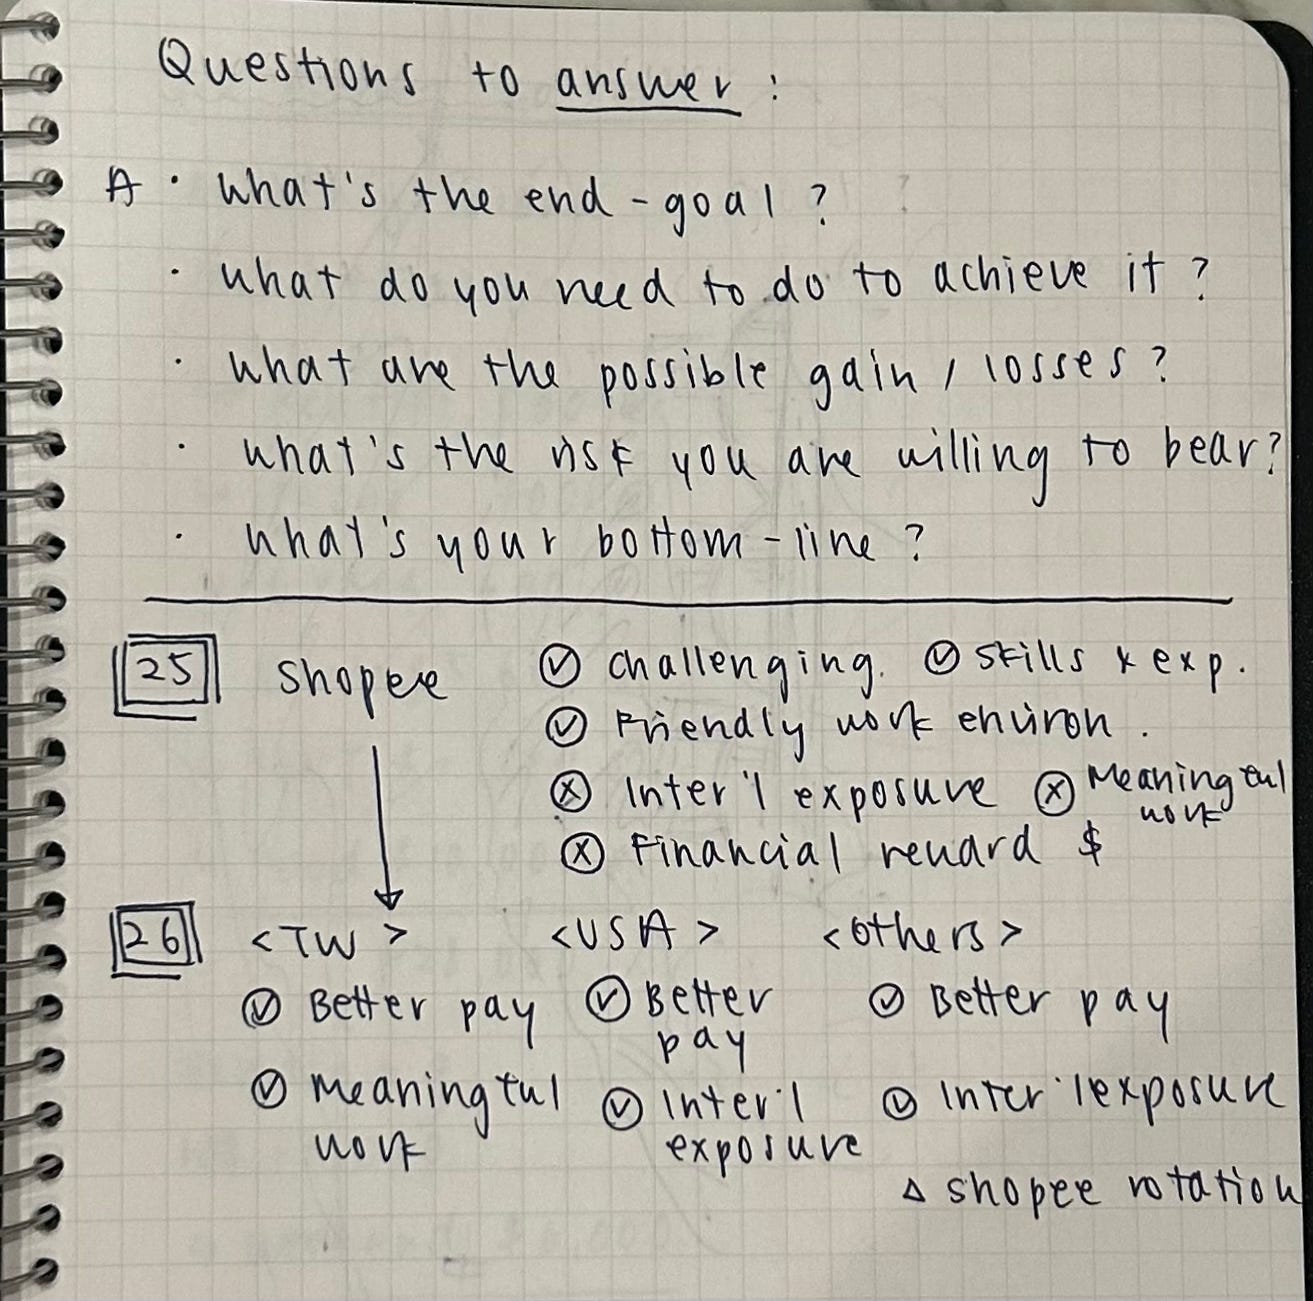 Questions to answer :
A · What's the end-goal ?
· What do you need to do to achieve it ?
· What are the possible gain / losses ?
· What's the risk you are willing to bear?
· What's your bottom-line ?
25 Shopee ✓ Challenging. ✓ Skills & exp.
✓ Friendly work environ.
✗ Inter'l exposure ✗ Meaningful work
✗ Financial reward $
26 <TW> <USA> <Others>
✓ Better pay ✓ Better pay ✓ Better pay
✓ Meaningful work ✓ Inter'l exposure ✓ Inter'l exposure
△ Shopee rotation